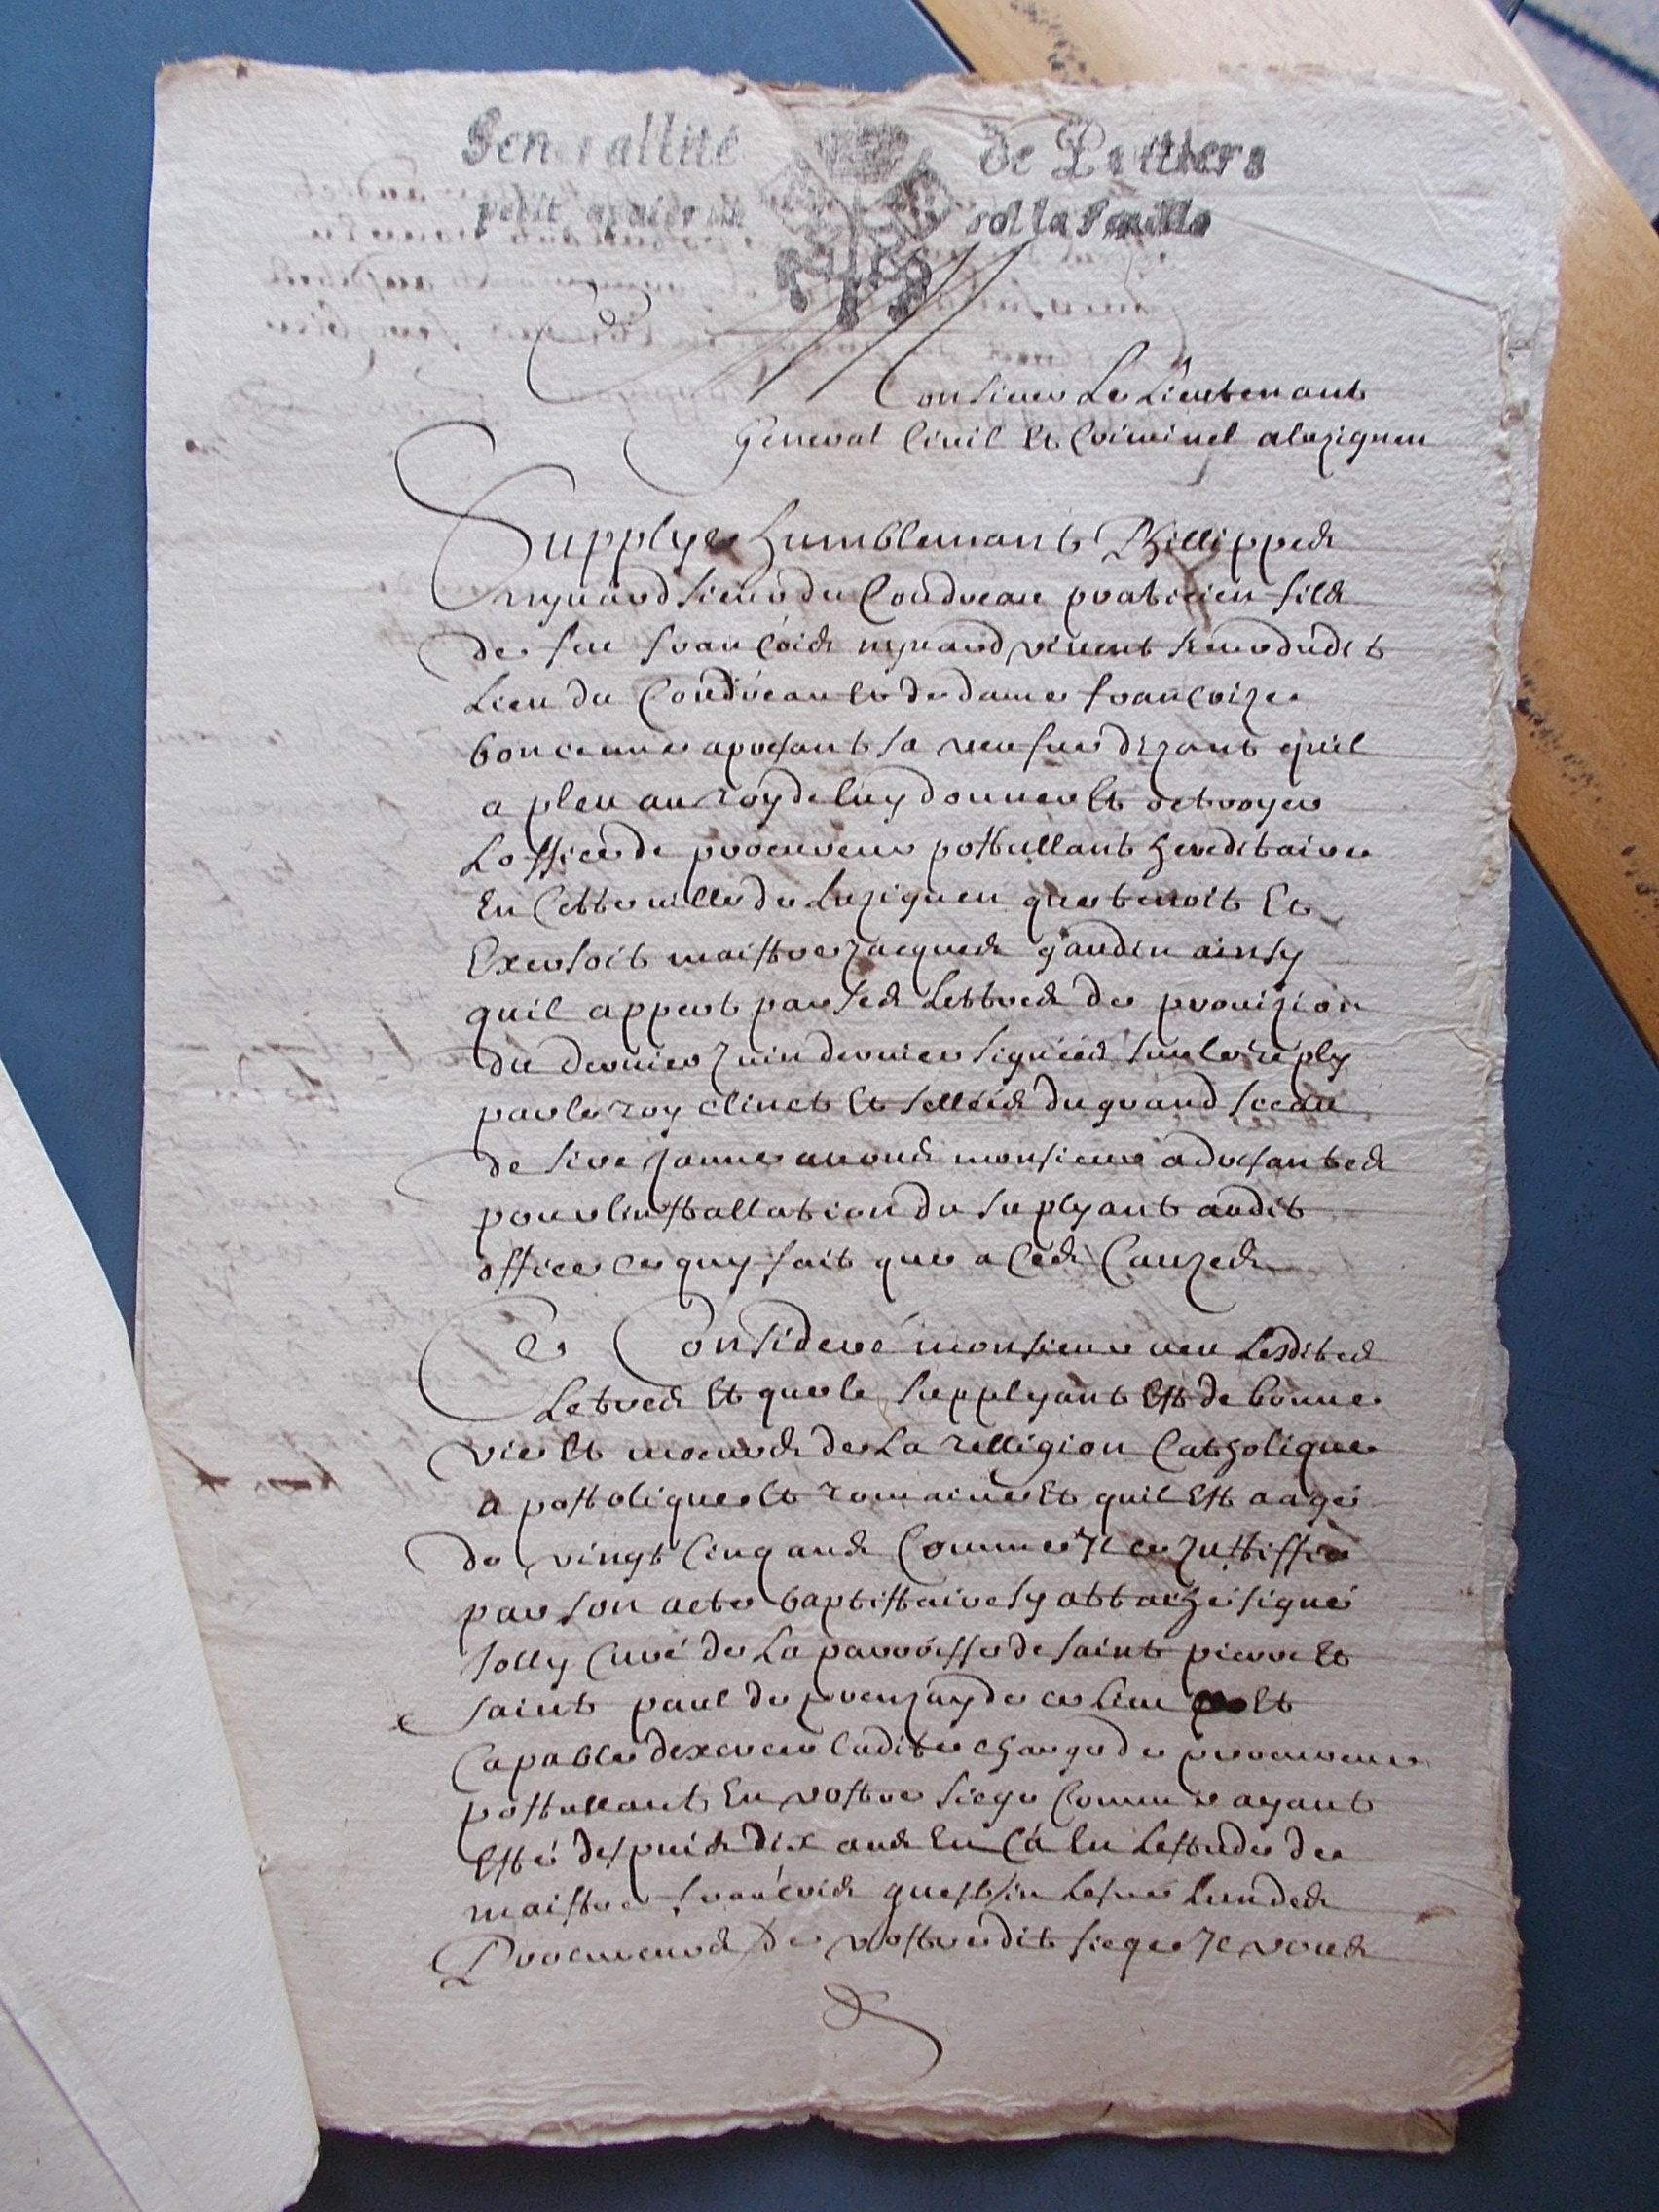 Generallité de Poitiers
petit papier un sol la feuille
Monsieur Le Lieutenant
General Civil Et Criminel a luzignen
Supplye humblemant Phillippes
mynard sieur du Coudreau praticien fils
de feu francois mynard vivent sieur dudit
Lieu du Coudreau et de dame francoize
boncenne apresant sa veufve dizant quil
a pleu au roy de luy donner Et octroyer
Loffice de procureur posttullant hereditaire
En Cette ville de Luzignen que tenoit Et
Exersoit maistre Jacques gaudin ainsy
quil appert par ses Lettres de provizion
du dernier Juin dernier signées sur le reply
par le roy clinet Et sellées du grand sceau
de sire jaune avons monsieur adresantes
pour linsttallation du suplyant audit
office ce quy fait que a Ces Cauzes
Ce Consideré monsieur veu Lesdites
Letres Et que le supplyant Est de bonne
vie Et moeurs de La relligion Catholique
apostolique Et romaine Et quil Est aagé
de vingt Cinq ans Comme Il ce Justiffie
par son acte baptisttaire sy attaché signé
Jolly Curé de La parroisse de saint pierre Et
saint paul de prenzay de ce lieu Et
Capable dexercer ladite charge de procureur
posttullant En vostre siege Comme ayant
Esté despuis dix ans En Cà En Lestude de
maistre francois questin Lesné Lun des
Procureurs de vostredit siege Il vous